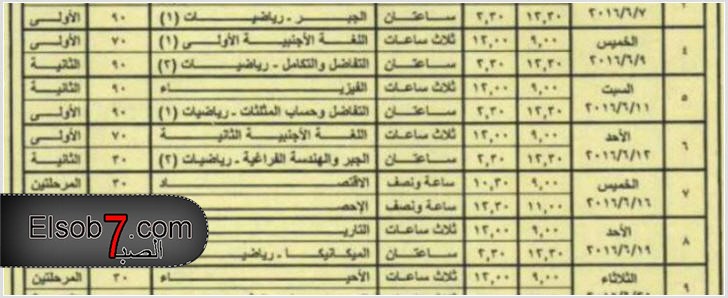 ٢٠١٦/٦/٧ ١٢,٣٠ ٢,٣٠ ساعتان الجبر ـ رياضيات (١) ٩٠ الأولى
٤ الخميس ٢٠١٦/٦/٩ ٩,٠٠ ١٢,٠٠ ثلاث ساعات اللغة الأجنبية الأولى (١) ٧٠ الأولى
١٢,٣٠ ٢,٣٠ ساعتان التفاضل والتكامل ـ رياضيات (٢) ٩٠ الثانية
٥ السبت ٢٠١٦/٦/١١ ٩,٠٠ ١٢,٠٠ ثلاث ساعات الفيزياء ٩٠ الثانية
١٢,٣٠ ٢,٣٠ ساعتان التفاضل وحساب المثلثات ـ رياضيات (١) ٩٠ الأولى
٦ الأحد ٢٠١٦/٦/١٢ ٩,٠٠ ١٢,٠٠ ثلاث ساعات اللغة الأجنبية الثانية ٧٠ الأولى
١٢,٣٠ ٢,٣٠ ساعتان الجبر والهندسة الفراغية ـ رياضيات (٢) ٣٠ الثانية
٧ الخميس ٢٠١٦/٦/١٦ ٩,٠٠ ١٠,٣٠ ساعة ونصف الاقتصاد ٣٠ المرحلتين
١١,٠٠ ١٢,٣٠ ساعة ونصف الإحص
٨ الأحد ٢٠١٦/٦/١٩ ٩,٠٠ ١٢,٠٠ ثلاث ساعات التاري
١٢,٣٠ ٢,٣٠ ساعتان الميكانيكا ـ رياضي
٩ الثلاثاء ٩,٠٠ ١٢,٠٠ ثلاث ساعات الأحياء ٣٠ المرحلتين
Elsob7.com
الصبـ